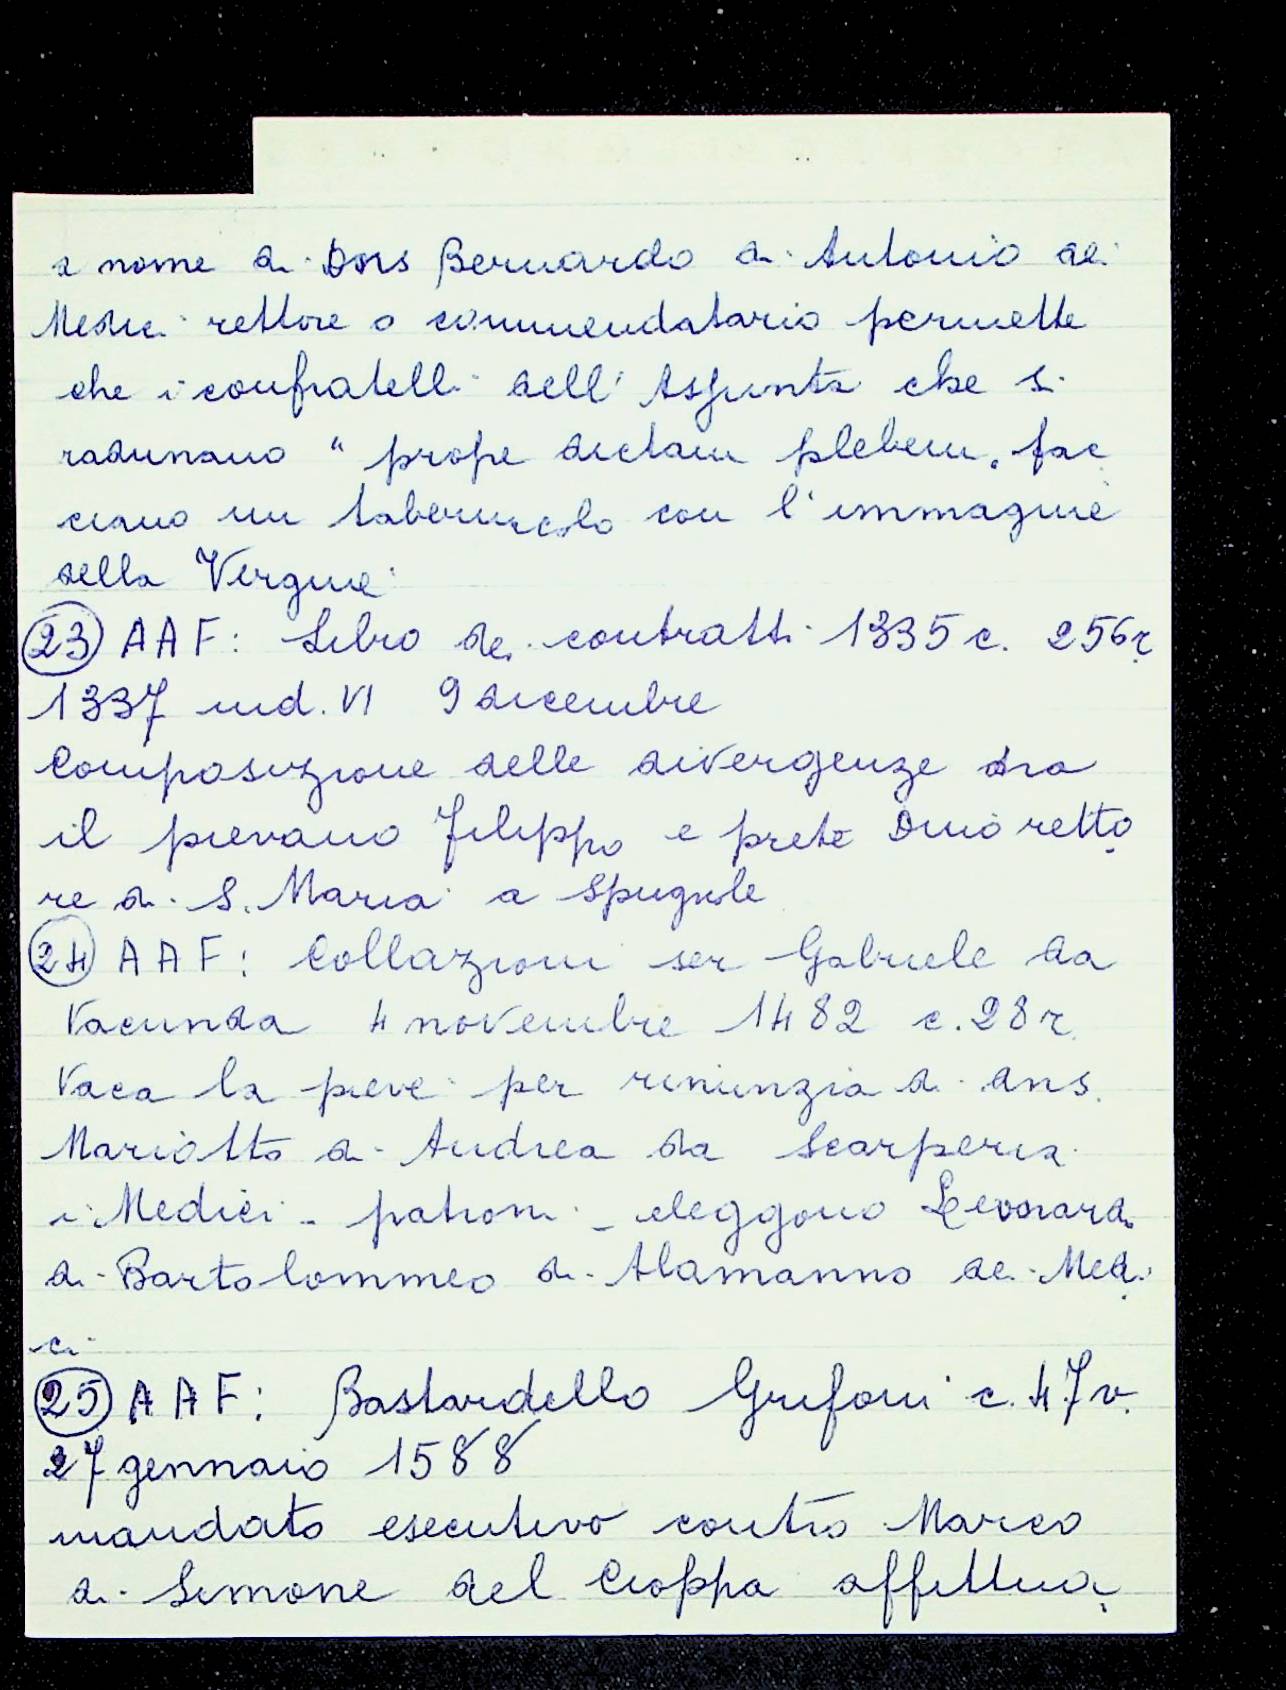 a nome di Doms Bernardo di Antonio dei
Medici rettore o commendatario permette
che i confratelli dell'Assunta che si
radunano " prope dictam plebem " fac
ciano un tabernacolo con l'immagine
della Vergine
23 AAF: Libro dei contratti 1335 c. 256r
1337 ind. VI 9 dicembre
Composizione delle divergenze tra
il pievano Filippo e prete Dino retto
re di S. Maria a Spugnole
24 AAF: Collazioni ser Gabriele da
Vacunda 4 novembre 1482 c. 28r.
Vaca la pieve per rinunzia di dns.
Mariotto di Andrea da Scarperia
i Medici - patroni - eleggono Leonardo
di Bartolommeo di Alamanno dei Medi
ci
25 AAF: Bastardello Grifoni c. 47v.
27 gennaio 1588
mandato esecutivo contro Marco
di Simone del Cioppa affittua